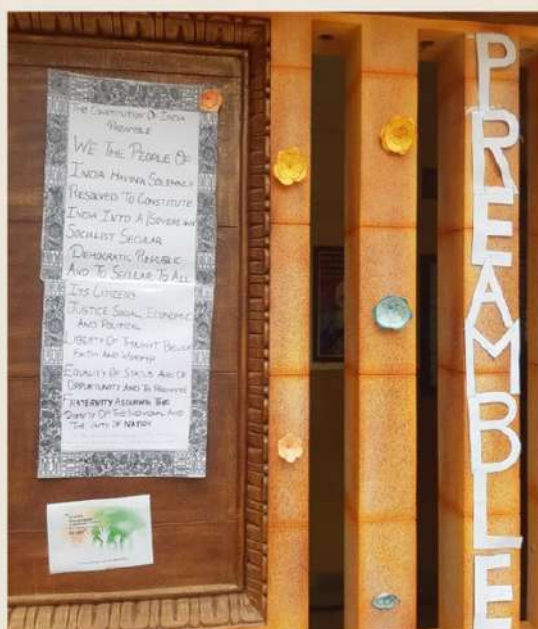 The Constitution Of India
Preamble
WE THE PEOPLE OF
INDIA HAVING SOLEMNLY
RESOLVED TO CONSTITUTE
INDIA INTO A SOVEREIGN
SOCIALIST SECULAR
DEMOCRATIC REPUBLIC
AND TO SECULAR TO ALL
ITS CITIZENS
JUSTICE SOCIAL ECONOMIC
AND POLITICAL
LIBERTY OF THOUGHT BELIEF
FAITH AND WORSHIP
EQUALITY OF STATUS AND OF
OPPORTUNITY AND TO PROMOTE
FRATERNITY ASSURING THE
DIGNITY OF THE INDIVIDUAL AND
THE UNITY OF NATION
PREAMBLE